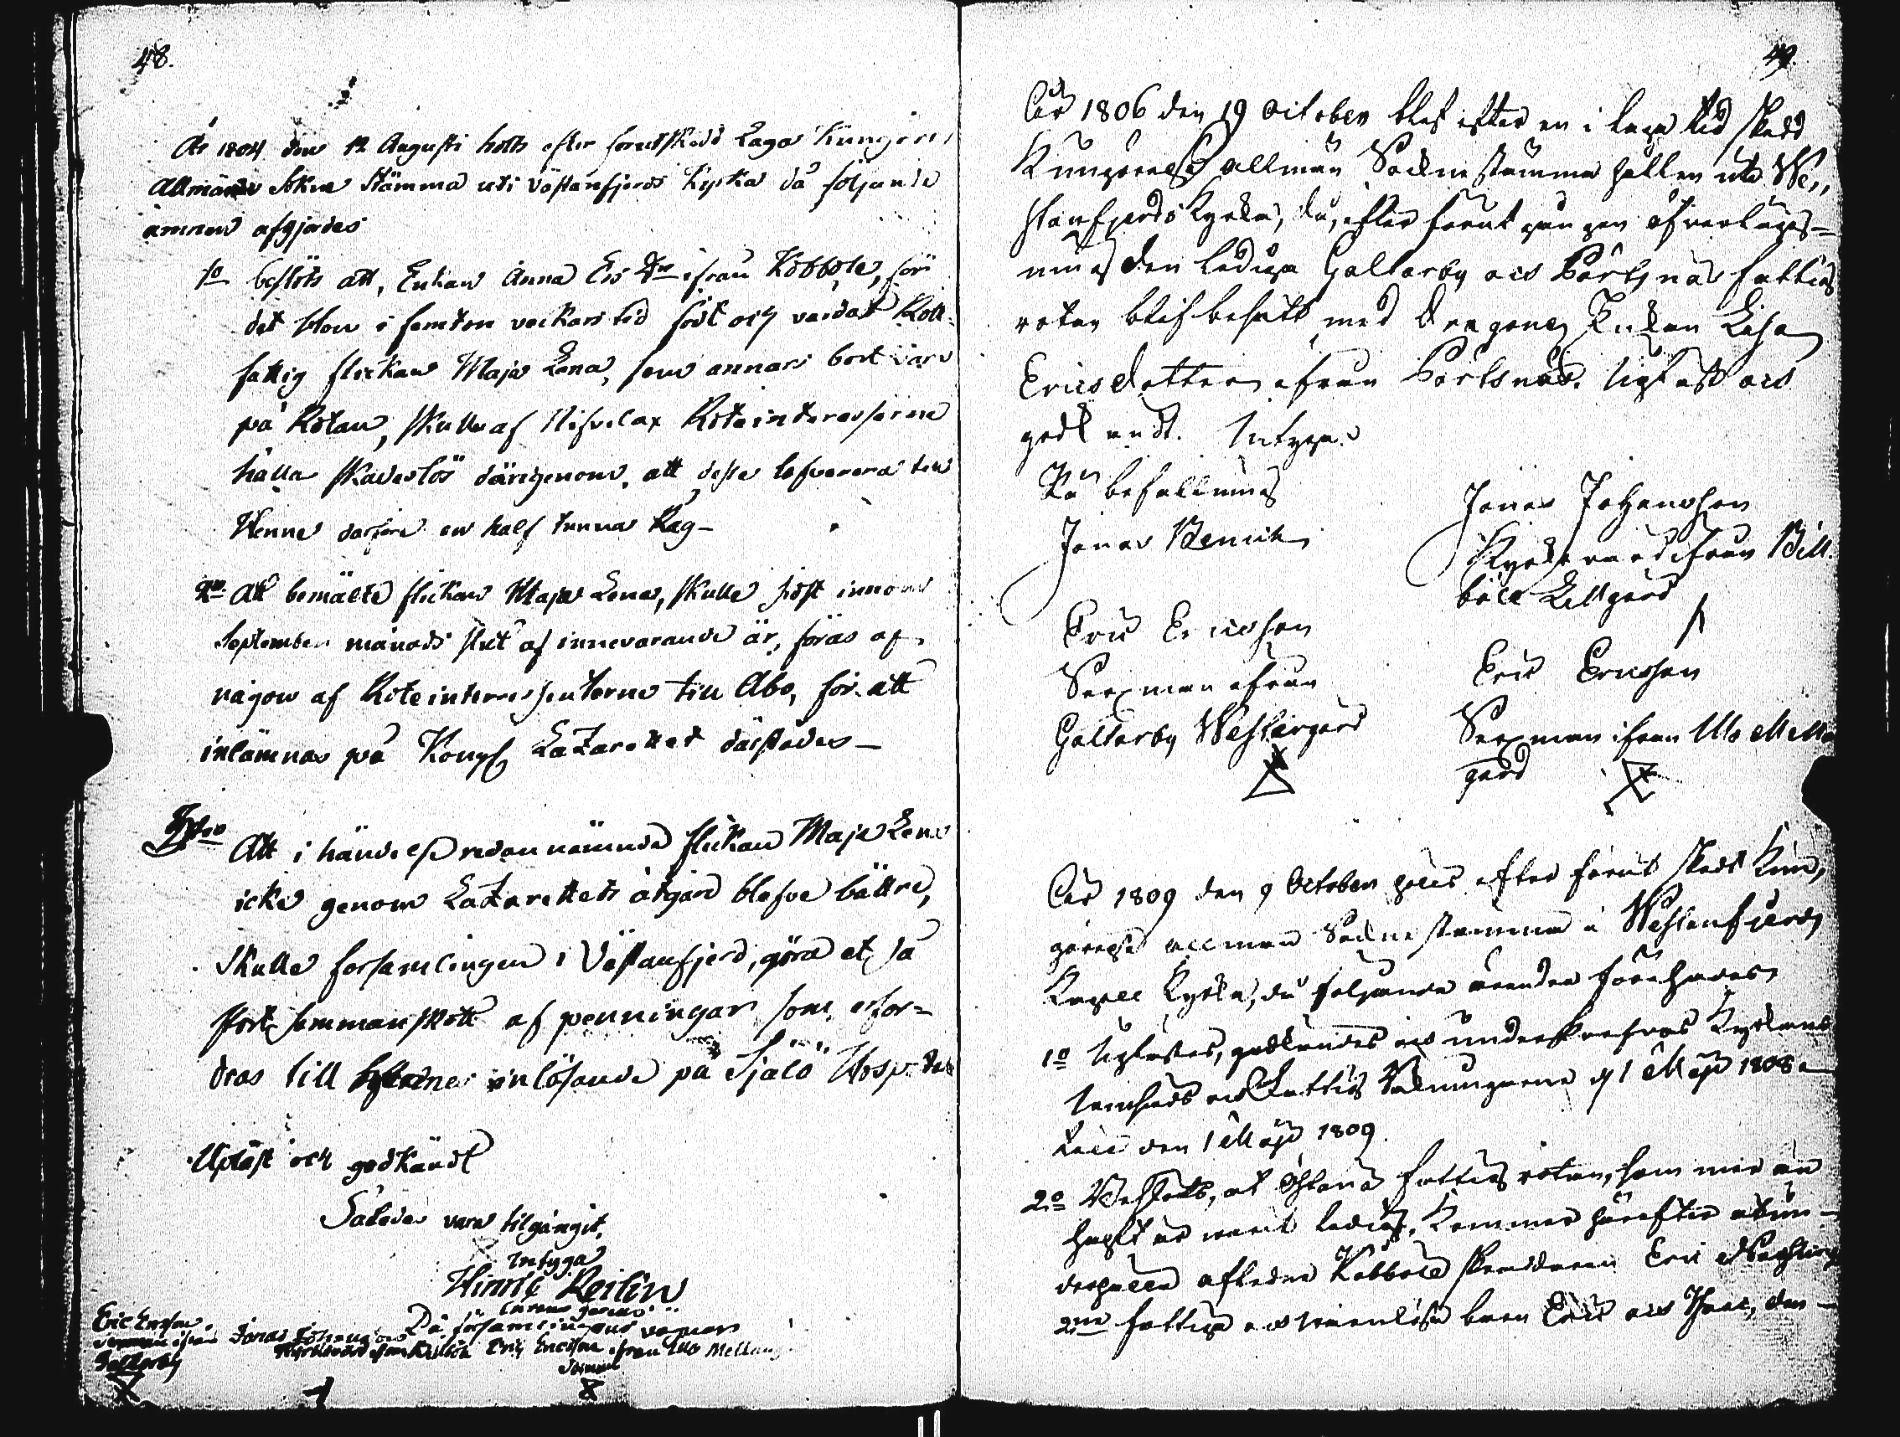 48.
År 1804 den 12 Augusti hölts efter förutskedd Laga Kungörelse
Allmän Sokne Stämma uti Västanfjerds Kyrka då följande
ämnen afgjordes
1o beslöts att, Enkan Anna Ers Dr ifrån Kobböle, för
det hon i femton veckors tid född och vårdat Rote-
fattig flickan Maja Lena, som annars bort vara
på Rotan, skulle af Nifvelax Roteinteressenterne
hålla skadeslös därigenom, att desse lefverera till
Henne derföre en half tunna Råg—
2o Att bemälte flickan Maja Lena, skulle sidst innom
September månads slut af innevarande år, föras af
någon af Roteinteressenterne till Åbo, för att
inlämnas på Kongl Lazarettet därstädes—
3tio Att i händelse redan nämnde flickan Maja Lena
icke genom Lazarettets åtgärd blefve bättre,
skulle församlingen i Västanfjerd, göra et så
stort sammanskott af penningar som erfor-
dras till hennes inlösande på Själö Hospital
Upläst och godkändt
Således vara tilgångit,
Intyga
Hinric Reilin
På församlingens vägnar
Eric Ersson
Sexman ifrån
Galtarby
Jonas Johansson
Kyrkovärd ifrån
Eric Ericsson ifrån Illo Mellangård
Sexman
49.
År 1806 den 19 October blef efter en i laga tid skedd
Kungörelse allmän Sockne stämma hållen uti We-
stanfjerds Kyrka, då, efter förut gången öfverlägg-
ning den lediga Galtarby och Pörtsnäs fattig
rotan blef besatt med Dragone Enkan Lisa
Ericsdotter ifrån Pörtsnäs. Upläst och
godkändt. Intyga
På befallning
Jonas Benick
Jonas Johansson
Kyrkovärd ifrån Bill-
böle Lillgård
Eric Ericsson
Sexman ifrån
Galtarby Westergård
Eric Ericsson
Sexman ifrån Illo Mellan
gård
År 1809 den 9 October hölls efter förut skedd Kun-
görelse allmän Sockne stämma i Westanfjerds
Kapell Kyrka, då följande ärender förehades
1o Uplästes, godkändes och underskrefvos Kyrkans
samt Fattig Räkningarne från 1 Maji 1808
till den 1 Maji 1809.
2o Beslöts, at fattig rotan, som med en
tid varit ledig, Kommer härefter at un-
derhålla aflidne Kobböle skräddaren Eric
2ne fattiga och wärnlösa barn Eric och Isaac, den